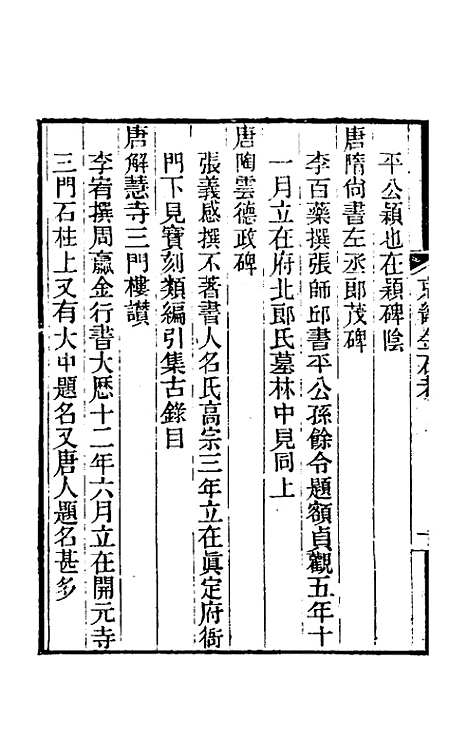 平公穎也在穎碑陰
唐隋尙書左丞郎茂碑
李百藥撰張師邱書平公孫餘令題額貞觀五年十
一月立在府北郎氏墓林中見同上
唐陶雲德政碑
張義感撰不著書人名氏高宗三年立在眞定府衙
門下見寶刻類編引集古錄目
唐解慧寺三門樓讃
李宥撰周嬴金行書大厯十二年六月立在開元寺
三門石柱上又有大中題名又唐人題名甚多